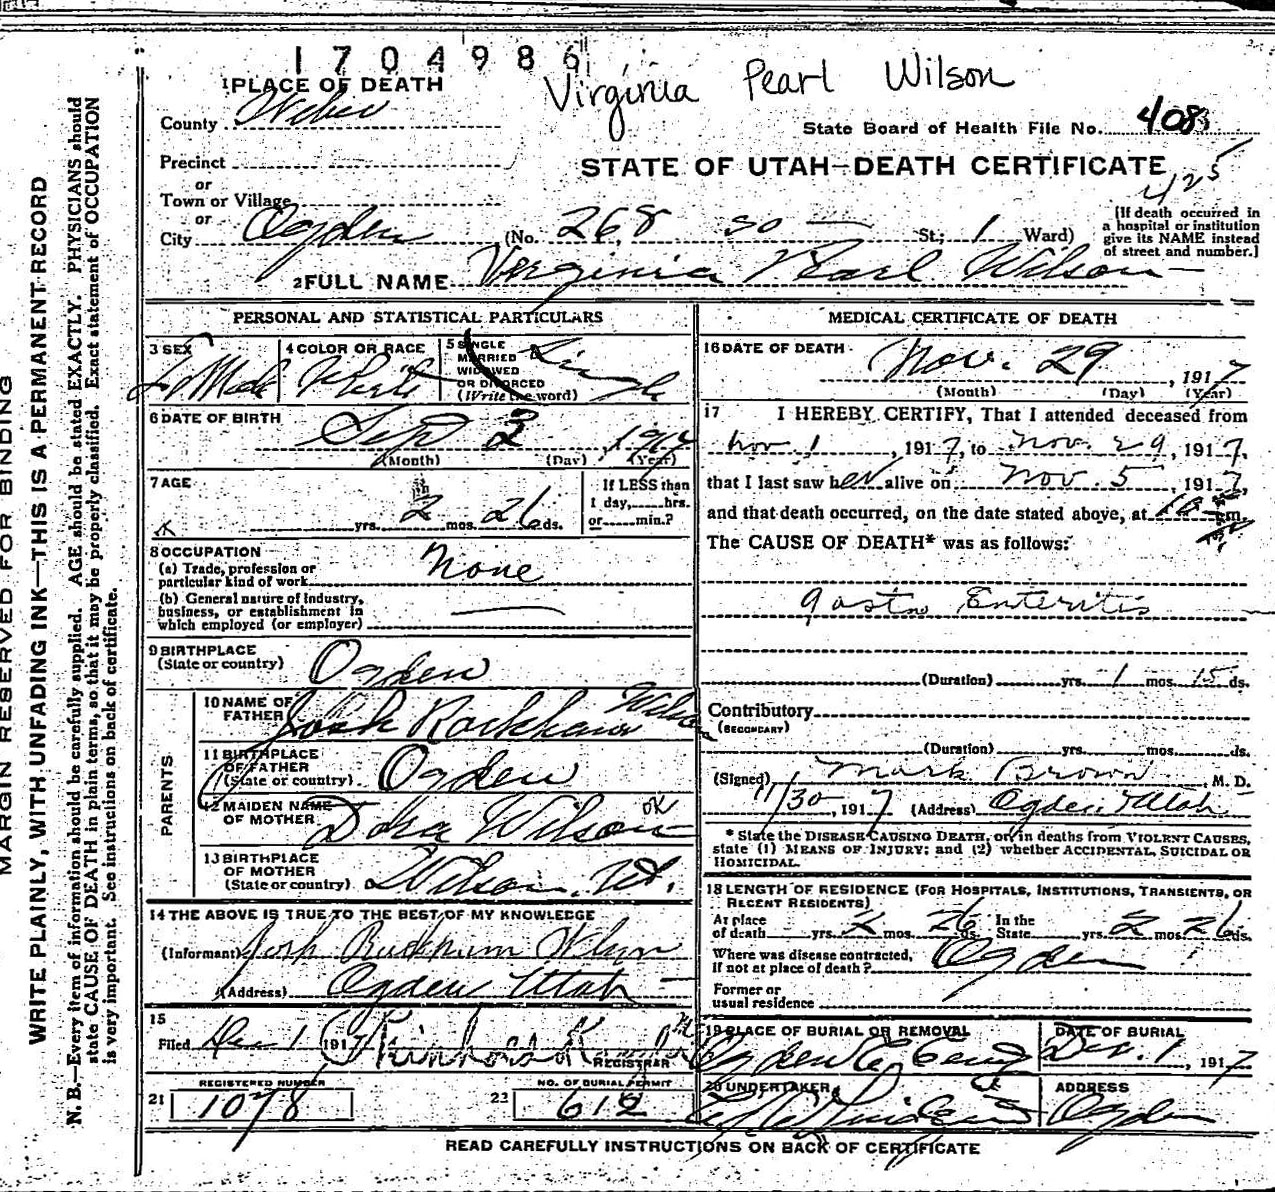 1704986
Virginia Pearl Wilson
1 PLACE OF DEATH
County Weber
State Board of Health File No. 408
Precinct
STATE OF UTAH—DEATH CERTIFICATE
or
Town or Village
425
or
City Ogden (No. 268 so — St.; 1 Ward)
[If death occurred in a hospital or institution give its NAME instead of street and number.]
2 FULL NAME Virginia Pearl Wilson
PERSONAL AND STATISTICAL PARTICULARS
3 SEX
4 COLOR OR RACE White
5 SINGLE MARRIED WIDOWED OR DIVORCED (Write the word) Single
6 DATE OF BIRTH
Sep 3 1917
(Month) (Day) (Year)
7 AGE
yrs. 2 mos. 26 ds.
If LESS than 1 day, hrs. or min.?
8 OCCUPATION
(a) Trade, profession or particular kind of work None
(b) General nature of industry, business, or establishment in which employed (or employer)
9 BIRTHPLACE
(State or country) Ogden
PARENTS
10 NAME OF FATHER Wilson
11 BIRTHPLACE OF FATHER
(State or country) Ogden
12 MAIDEN NAME OF MOTHER Dora Wilson OK
13 BIRTHPLACE OF MOTHER
(State or country) Wilson, Ut.
14 THE ABOVE IS TRUE TO THE BEST OF MY KNOWLEDGE
(Informant) Josh Wilson
(Address) Ogden Utah
15
Filed Dec 1 1917 REGISTRAR
REGISTERED NUMBER
21 1078
NO. OF BURIAL PERMIT
22 612
MEDICAL CERTIFICATE OF DEATH
16 DATE OF DEATH
Nov. 29, 1917
(Month) (Day) (Year)
17 I HEREBY CERTIFY, That I attended deceased from
Nov. 1, 1917, to Nov. 29, 1917,
that I last saw her alive on Nov. 5, 1917,
and that death occurred, on the date stated above, at 10 m.
The CAUSE OF DEATH* was as follows:
gastro Enteritis
(Duration) yrs. 1 mos. 15 ds.
Contributory
(SECONDARY)
(Duration) yrs. mos. ds.
(Signed) Mark Brown M. D.
11/30, 1917 (Address) Ogden, Utah
* State the DISEASE CAUSING DEATH, or, in deaths from VIOLENT CAUSES,
state (1) MEANS OF INJURY; and (2) whether ACCIDENTAL, SUICIDAL OR
HOMICIDAL.
18 LENGTH OF RESIDENCE (FOR HOSPITALS, INSTITUTIONS, TRANSIENTS, OR
RECENT RESIDENTS)
At place of death yrs. 2 mos. 26 ds. In the State yrs. 2 mos. 26 ds.
Where was disease contracted,
If not at place of death? Ogden
Former or
usual residence
19 PLACE OF BURIAL OR REMOVAL
Ogden
DATE OF BURIAL
Dec. 1, 1917
20 UNDERTAKER
ADDRESS
Ogden
READ CAREFULLY INSTRUCTIONS ON BACK OF CERTIFICATE
MARGIN RESERVED FOR BINDING
WRITE PLAINLY, WITH UNFADING INK—THIS IS A PERMANENT RECORD
N. B.—Every item of information should be carefully supplied. AGE should be stated EXACTLY. PHYSICIANS should
state CAUSE OF DEATH in plain terms, so that it may be properly classified. Exact statement of OCCUPATION
is very important. See instructions on back of certificate.